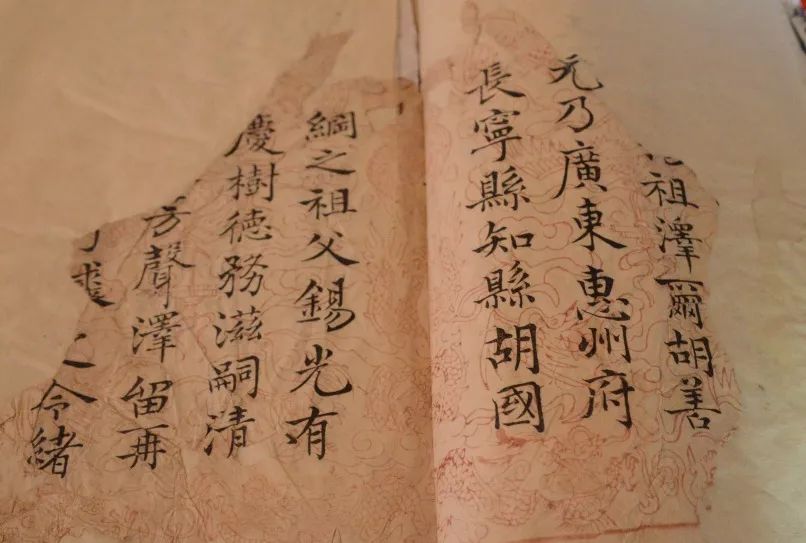 祖澤爾胡善
元乃廣東惠州府
長寧縣知縣胡國
綱之祖父錫光有
慶樹德務滋嗣清
芳聲澤留再
裘之令緒